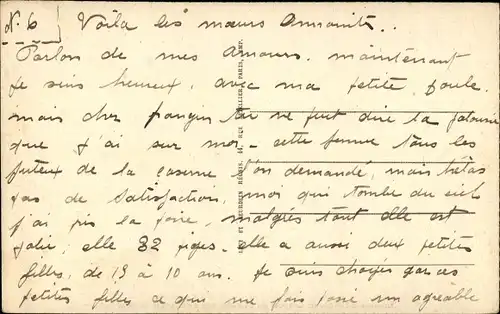 N. 6 Voila les mœurs Annamite..
Parlon de mes Amours. maintenant
Je suis heureux, avec ma petite poule.
mais cher frangin tu ne peut dire la jalousie
que j'ai sur moi - cette femme tous les
de la caserne l'on demandé, mais hélas
pas de satisfaction, moi qui tombe du ciel
j'ai pris la foire, malgrés tout elle est
jolie, elle 32 piges - elle a aussi deux petites
filles, de 13 à 10 ans. Je suis choyés par ces
petites filles ce que me fais passé un agréable